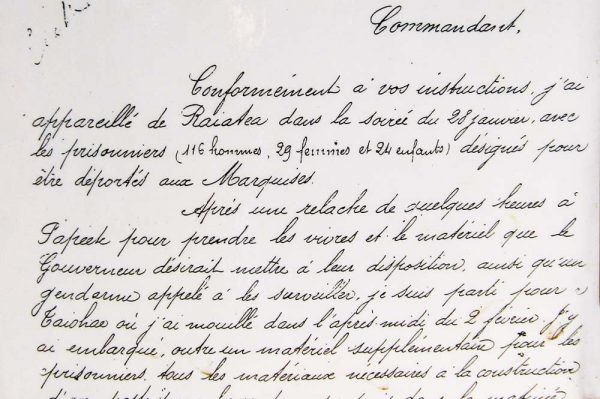 Commandant,
Conformément à vos instructions, j'ai
appareillé de Raiatea dans la soirée du 28 janvier, avec
les prisonniers (116 hommes, 29 femmes et 24 enfants) désignés pour
être déportés aux Marquises.
Après une relache de quelques heures à
Papeete pour prendre les vivres et le matériel que le
Gouverneur désirait mettre à leur disposition, ainsi qu'un
gendarme appelé à les surveiller, je suis parti pour
Taiohae où j'ai mouillé dans l'après-midi du 2 février. J'y
ai embarqué, outre un matériel supplémentaire pour les
prisonniers, tous les matériaux nécessaires à la construction